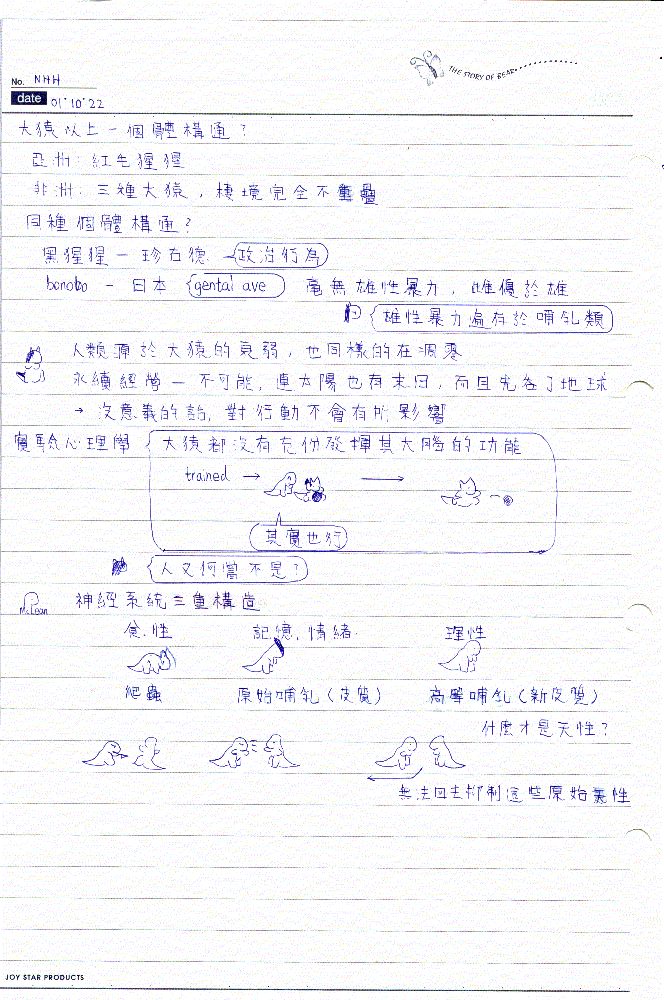 No. NHH
THE STORY OF BEAR
date 01'10'22
大猿以上一個體構通?
亞洲:紅毛猩猩
非洲:三種大猿,棲境完全不重疊
同種個體構通?
黑猩猩 — 珍古德 政治行為
bonobo - 日本 gental ave 毫無雄性暴力,雌優於雄
雄性暴力處存於哺乳類
人類源於大猿的衰弱,也同樣的在凋零
永續經營 — 不可能,連太陽也有末日,而且先吞了地球
→ 沒意義的話,對行動不會有所影響
實驗心理學 大猿都沒有充份發揮其大腦的功能
trained →
其實也行
人又何嘗不是?
McLean 神經系統三重構造
食.性 記憶,情緒. 理性
爬蟲 原始哺乳(皮質) 高等哺乳(新皮質)
什麼才是天性?
無法回去抑制這些原始氣性
JOY STAR PRODUCTS